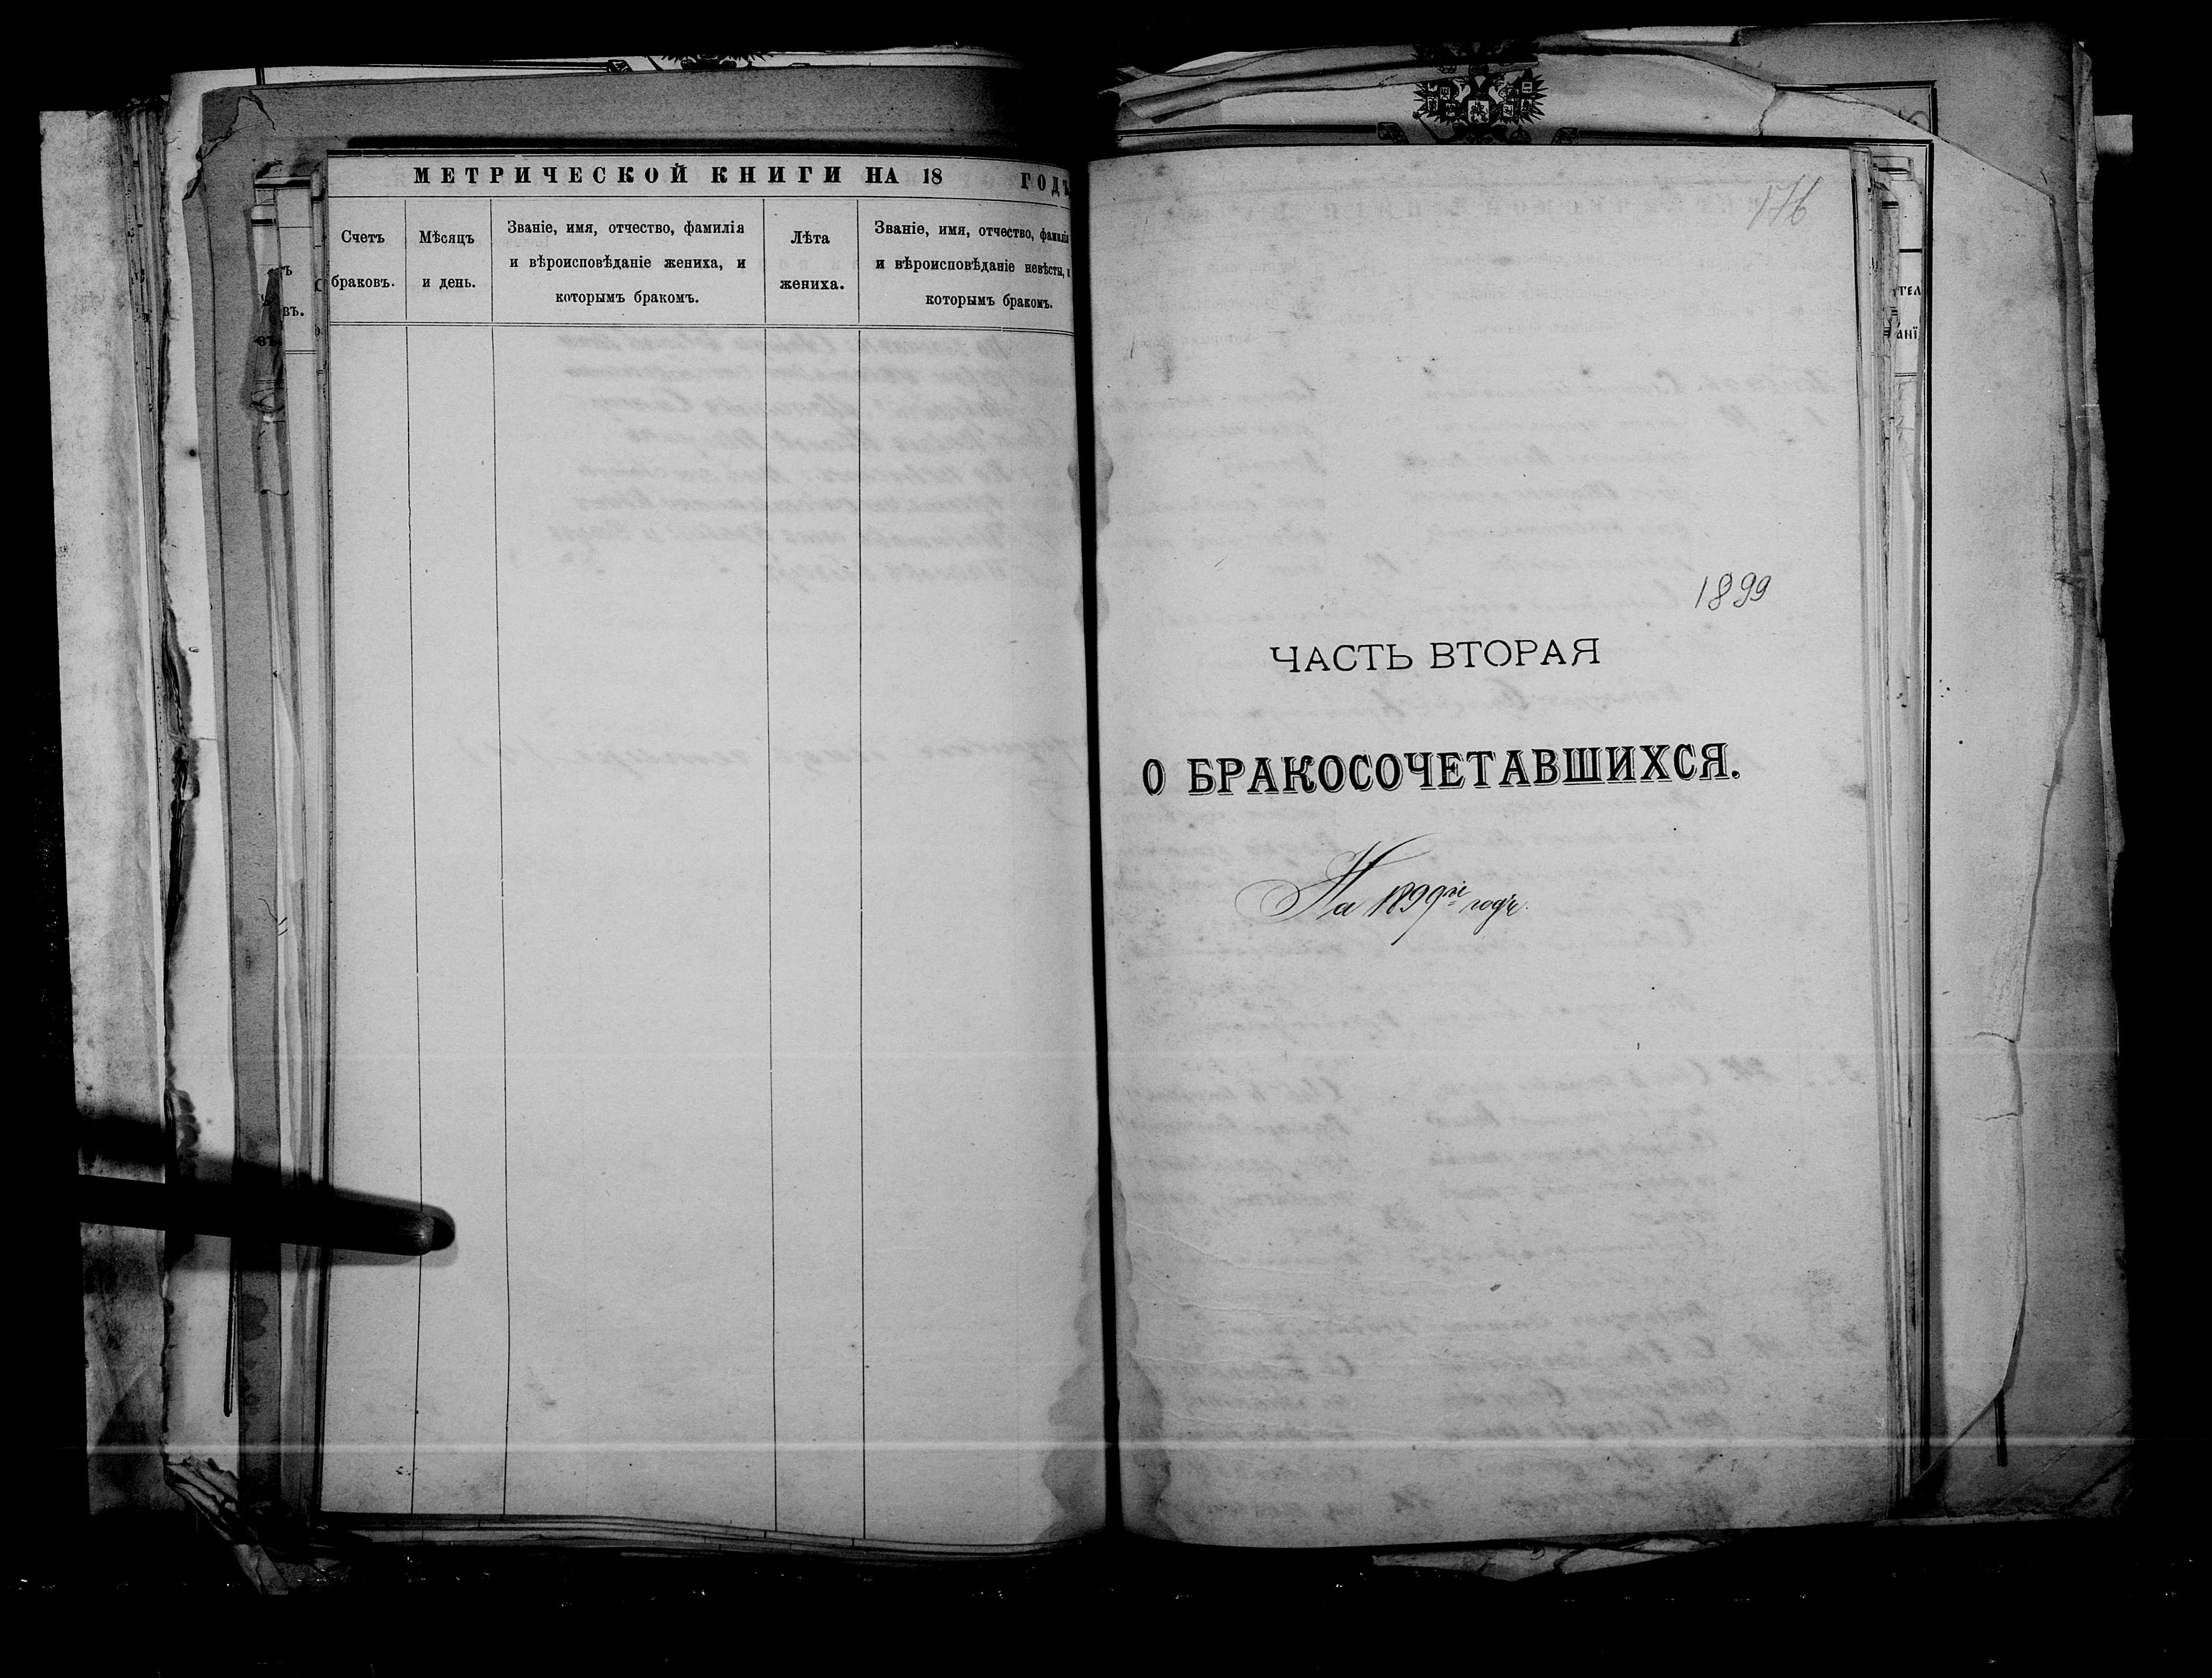 МЕТРИЧЕСКОЙ КНИГИ НА 18 ГОДЪ
Счетъ
браковъ.
Мѣсяцъ
и день.
Званіе, имя, отчество, фамилія
и вѣроисповѣданіе жениха, и
которымъ бракомъ.
Лѣта
жениха.
Званіе, имя, отчество, фамилія
и вѣроисповѣданіе невѣсты, и
которымъ бракомъ.
176
1899
ЧАСТЬ ВТОРАЯ
О БРАКОСОЧЕТАВШИХСЯ.
На 1899й годъ.